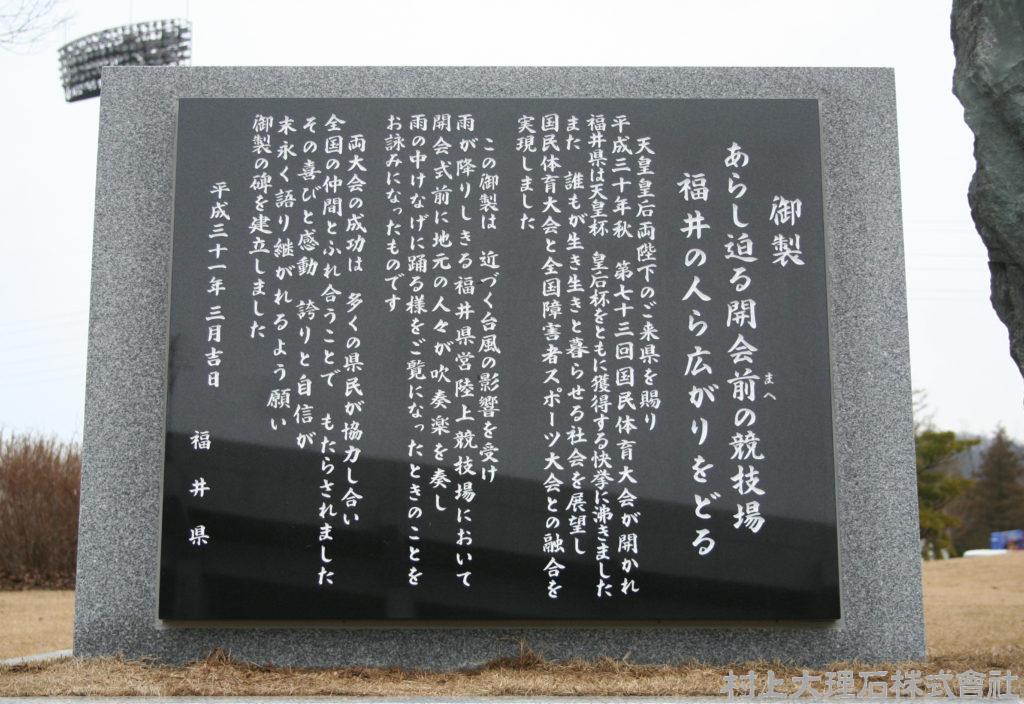 御製
あらし迫る開会前の競技場
まへ
福井の人ら広がりをどる
天皇皇后両陛下のご来県を賜り
平成三十年秋　第七十三回国民体育大会が開かれ
福井県は天皇杯　皇后杯をともに獲得する快挙に沸きました
また　誰もが生き生きと暮らせる社会を展望し
国民体育大会と全国障害者スポーツ大会との融合を
実現しました
この御製は　近づく台風の影響を受け
雨が降りしきる福井県営陸上競技場において
開会式前に地元の人々が吹奏楽を奏し
雨の中けなげに踊る様をご覧になったときのことを
お詠みになったものです
両大会の成功は　多くの県民が協力し合い
全国の仲間とふれ合うことで　もたらされました
その喜びと感動　誇りと自信が
末永く語り継がれるよう願い
御製の碑を建立しました
平成三十一年三月吉日
福井県
村上大理石株式會社